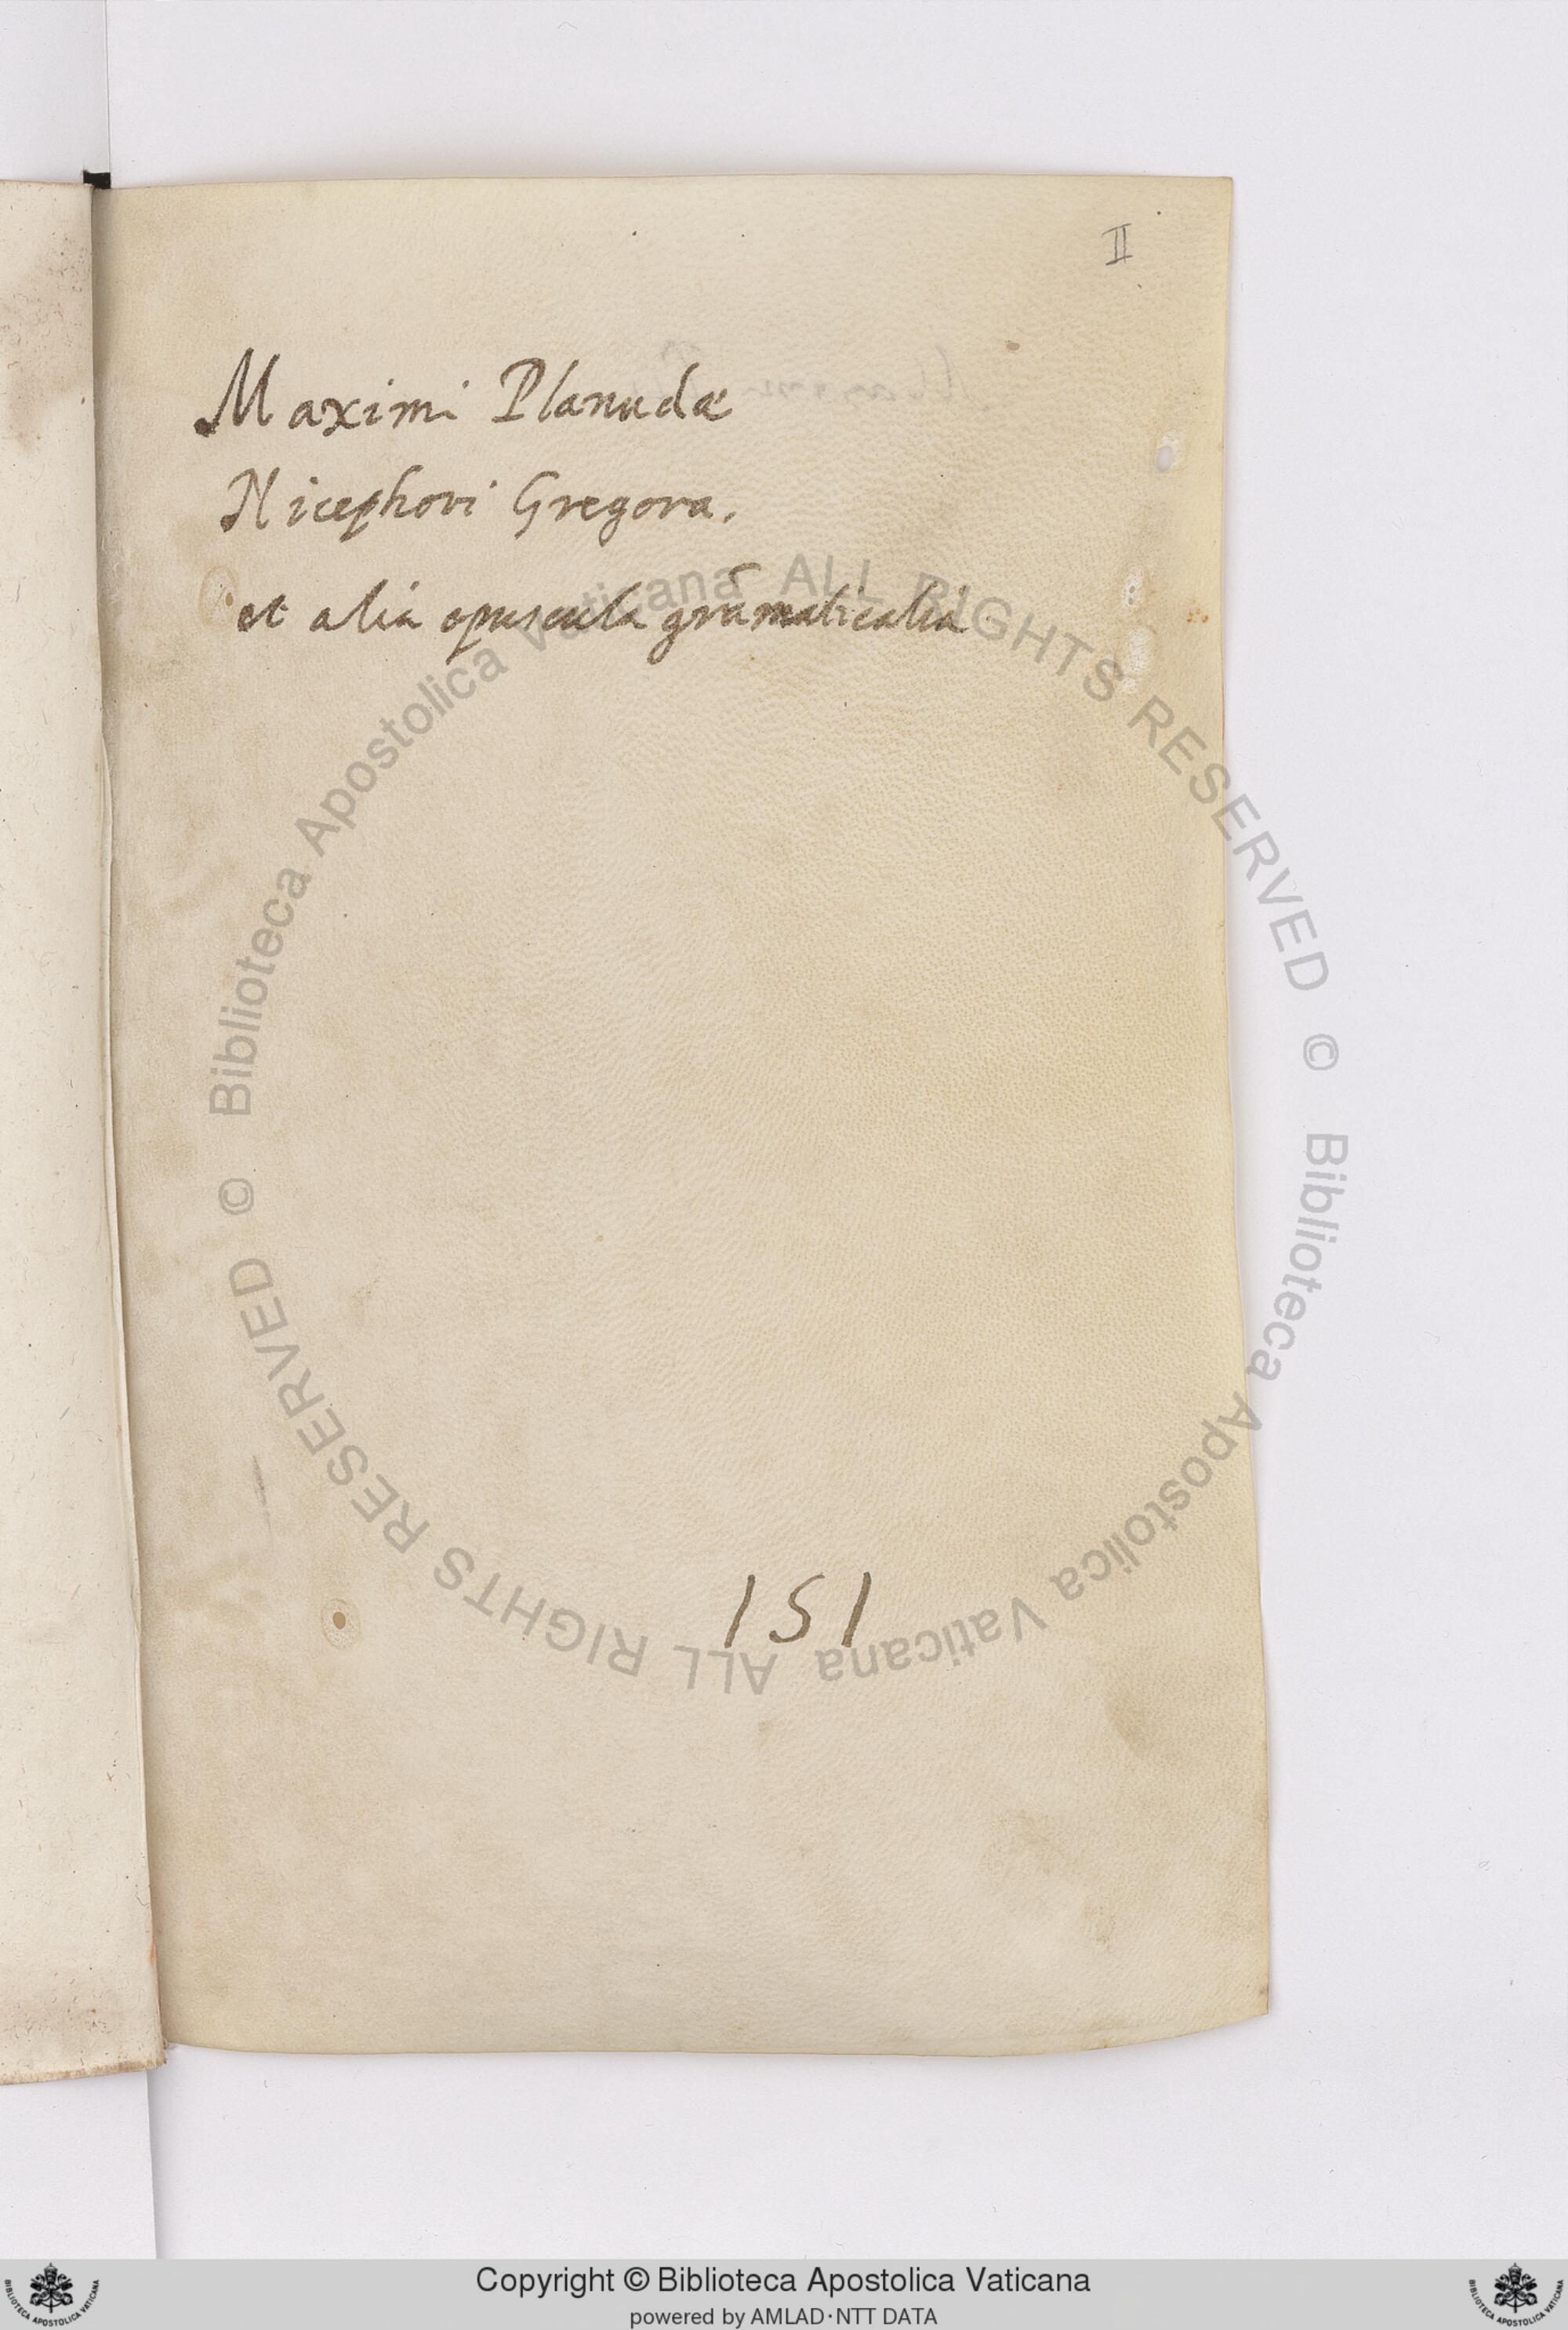 II
Maximi Planudæ
Nicephori Gregora.
et alia opuscula grāmaticalia
151
© Biblioteca Apostolica Vaticana ALL RIGHTS RESERVED
© Biblioteca Apostolica Vaticana ALL RIGHTS RESERVED
Copyright © Biblioteca Apostolica Vaticana
powered by AMLAD·NTT DATA
BIBLIOTECA APOSTOLICA VATICANA
BIBLIOTECA APOSTOLICA VATICANA